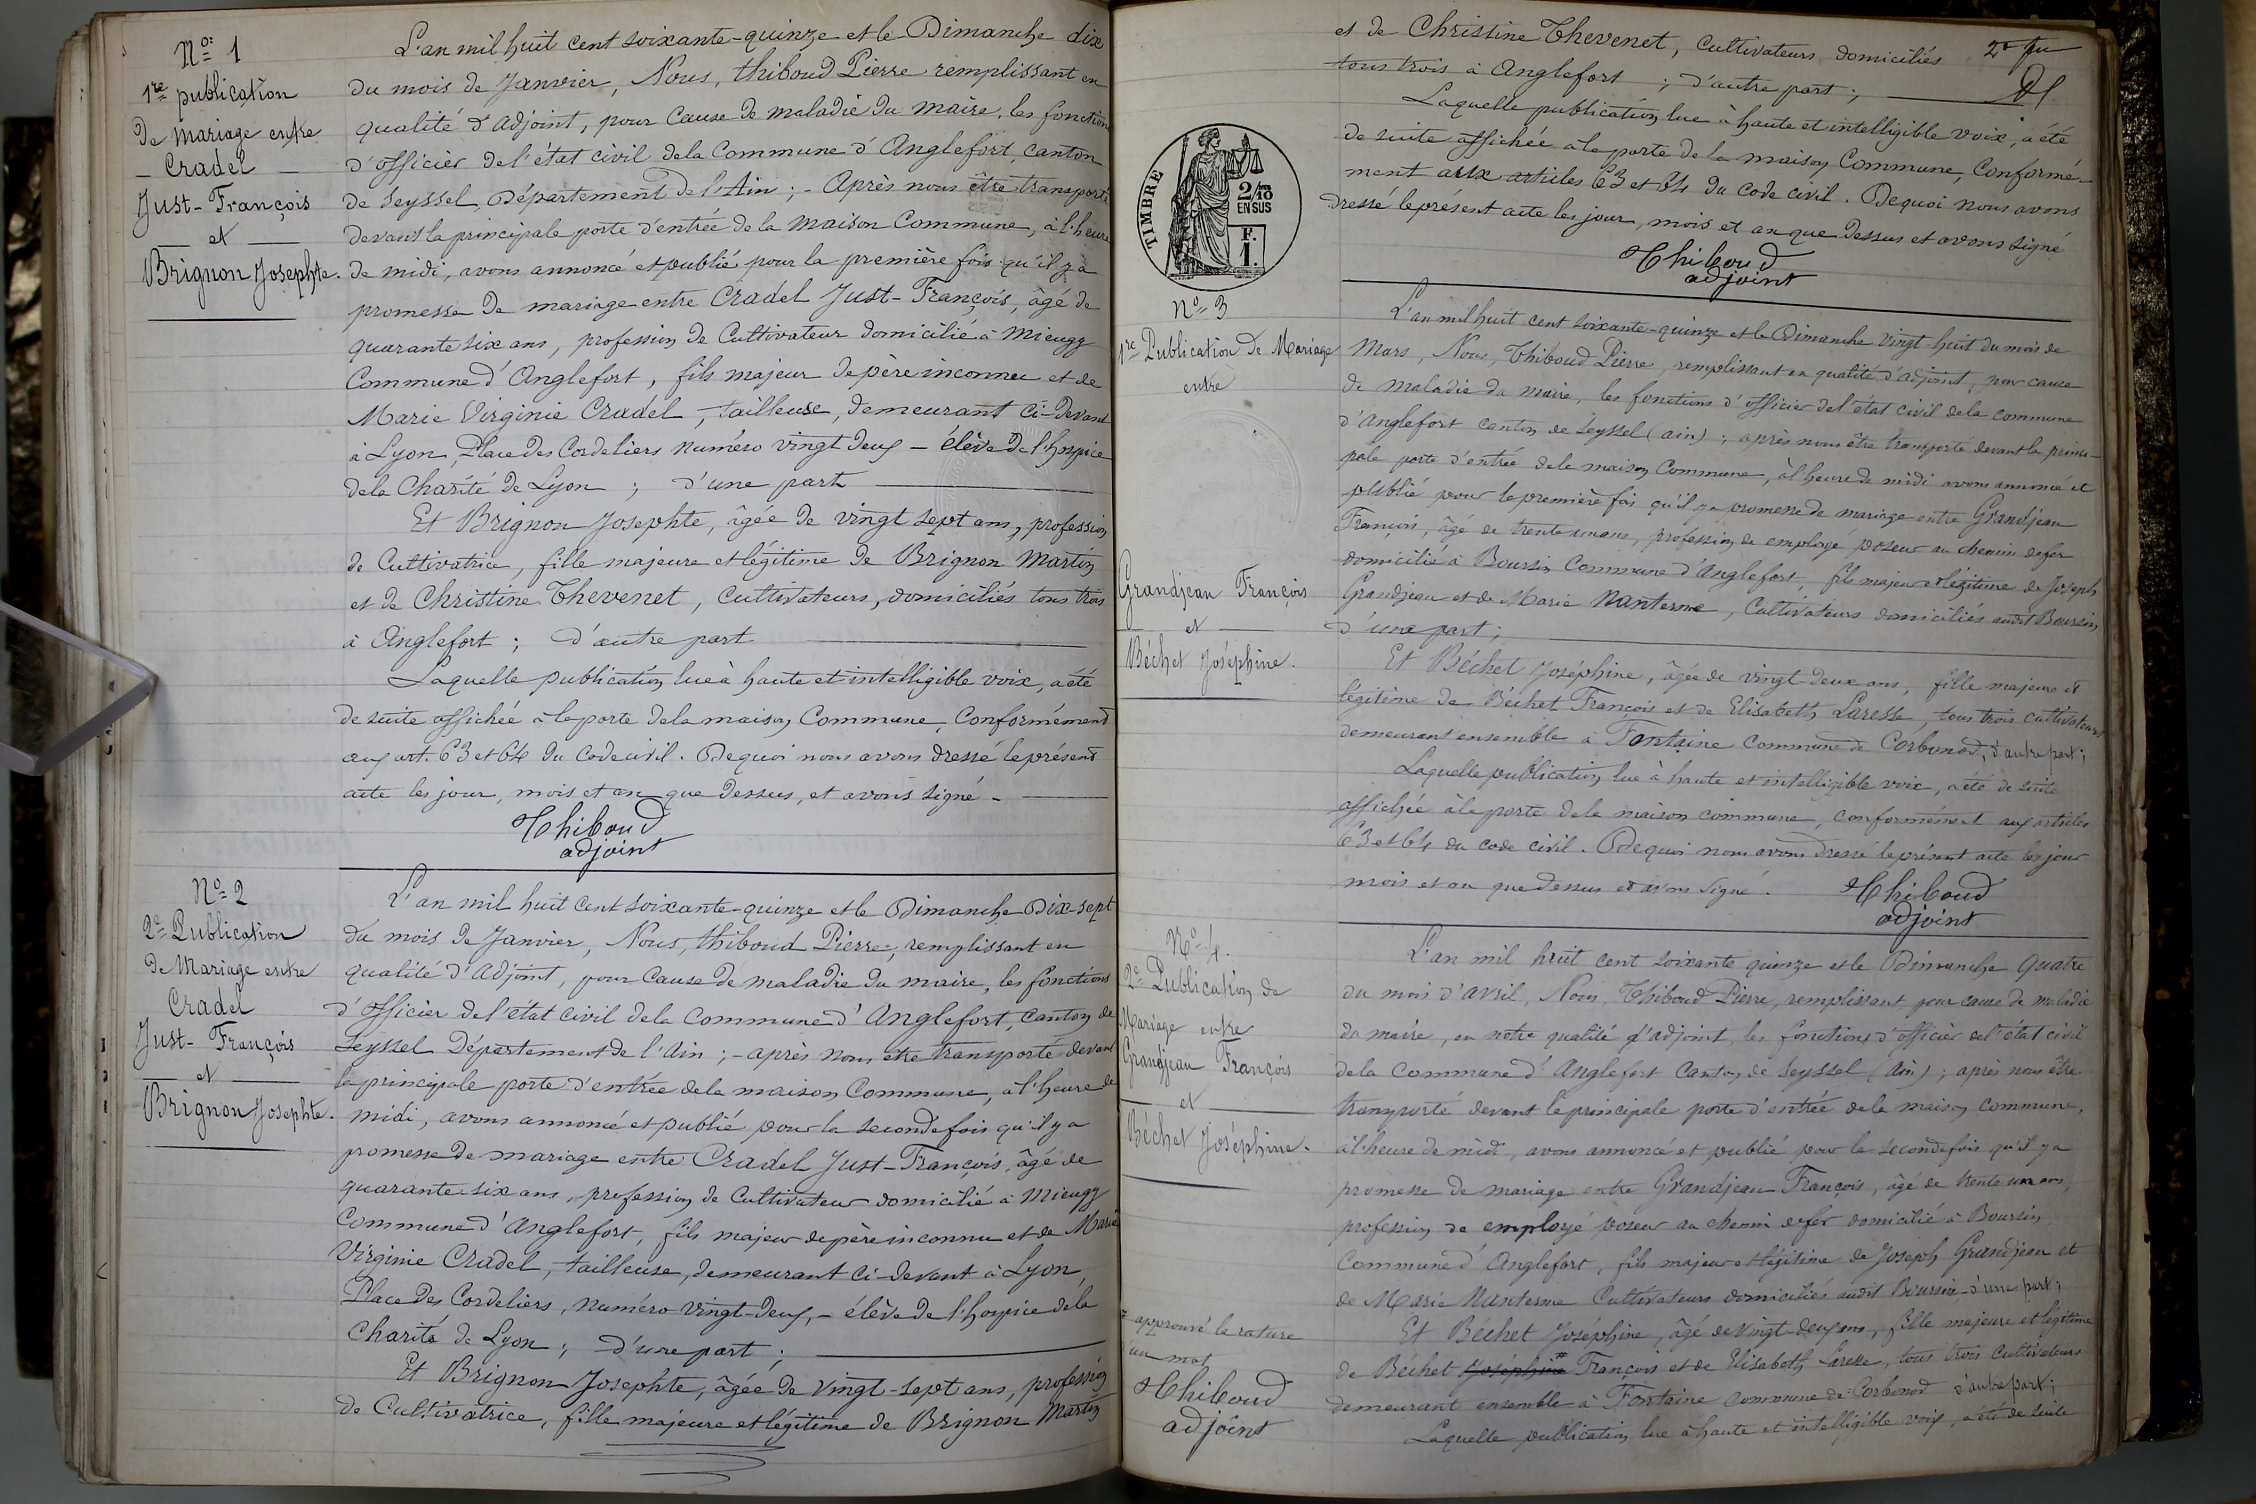 No. 1
1re publication
de mariage entre
Cradel
Just-François
et
Brignon Josephte.
L'an mil huit cent soixante-quinze et le Dimanche dix
du mois de Janvier, Nous, thiboud Pierre remplissant en
qualité d'adjoint, pour cause de maladie du maire, les fonctions
d'officier de l'état civil dela Commune d'Anglefort, canton
de Seyssel, Département de l'Ain ; - Après nous être transporté
devant la principale porte d'entrée de la maison Commune, à l'heure
de midi, avons annoncé et publié pour la première fois qu'il y a
promesse de mariage entre Cradel Just-François, âgé de
quarante six ans, profession de Cultivateur domicilié à Mieugy
Commune d'Anglefort, fils majeur de père inconnu et de
Marie Virginie Cradel, tailleuse, demeurant ci-devant
à Lyon, Place des Cordeliers numéro vingt deux - élève de l'hospice
dela Charité de Lyon ; d'une part
Et Brignon Josephte, âgée de vingt sept ans, profession
de Cultivatrice, fille majeure et légitime de Brignon Martin
et de Christine Thevenet, Cultivateurs, domiciliés tous trois
à Anglefort ; d'autre part
Laquelle publication lue à haute et intelligible voix, a été
de suite affichée à la porte dela maison Commune, Conformément
aux art. 63 et 64 du Code civil. De quoi nous avons dressé le présent
acte les jour, mois et an que dessus, et avons signé -
Thiboud
adjoint
No. 2
2e Publication
de Mariage entre
Cradel
Just-François
et
Brignon Josephte.
L'an mil huit cent soixante-quinze et le Dimanche Dix-sept
du mois de Janvier, Nous, thiboud Pierre, remplissant en
qualité d'adjoint, pour cause de maladie du maire, les fonctions
d'officier de l'état civil dela Commune d'Anglefort, canton de
Seyssel Département de l'Ain ; - après nous être transporté devant
la principale porte d'entrée dela maison Commune, à l'heure de
midi, avons annoncé et publié pour la seconde fois qu'il y a
promesse de mariage entre Cradel Just-François, âgé de
quarante-six ans, profession de Cultivateur domicilié à Mieugy
Commune d'Anglefort, fils majeur de père inconnu et de Marie
Virginie Cradel, tailleuse, demeurant ci-devant à Lyon,
Place des Cordeliers, numéro vingt-deux, - élève de l'hospice dela
Charité de Lyon ; d'une part ;
Et Brignon Josephte, âgée de vingt-sept ans, profession
de Cultivatrice, fille majeure et légitime de Brignon Martin
et de Christine Thevenet, Cultivateurs domiciliés
tous trois à Anglefort ; d'autre part ;
Laquelle publication lue à haute et intelligible voix, a été
de suite affichée à la porte de la maison Commune, Conformé-
ment aux articles 63 et 64 du Code civil. De quoi nous avons
dressé le présent acte les jour, mois et an que dessus et avons signé
Thiboud
adjoint
TIMBRE
2/10
EN SUS
F.
1.
No. 3
1re Publication de Mariage
entre
Grandjean François
et
Béchet Joséphine.
L'an mil huit cent soixante-quinze et le Dimanche vingt-huit du mois de
Mars, Nous, Thiboud Pierre, remplissant en qualité d'adjoint, pour cause
de maladie du maire, les fonctions d'officier del'état civil dela commune
d'Anglefort canton de Seyssel (ain) ; après nous être transporté devant la princi-
pale porte d'entrée dela maison Commune, à l'heure de midi avons annoncé et
publié pour la première fois qu'il y a promesse de mariage entre Grandjean
François, âgé de trente un ans, profession de employé poseur au chemin de fer
domicilié à Boursin Commune d'Anglefort, fils majeur et légitime de Joseph
Grandjean et de Marie Nanterme, Cultivateurs domiciliés audit Boursin,
d'une part ;
Et Béchet Joséphine, âgée de vingt-deux ans, fille majeure et
légitime de Béchet François et de Elisabeth Laresse, tous trois cultivateurs
demeurant ensemble à Fontaine commune de Corbonod, d'autre part ;
Laquelle publication lue à haute et intelligible voix, a été de suite
affichée à la porte dela maison commune, conformément aux articles
63 et 64 du code civil. De quoi nous avons dressé le présent acte les jour
mois et an que dessus et avons signé.
Thiboud
adjoint
No. 4.
2e Publication de
Mariage entre
Grandjean François
et
Béchet Joséphine.
L'an mil huit cent soixante quinze et le Dimanche Quatre
du mois d'avril, Nous, Thiboud Pierre, remplissant pour cause de maladie
du maire, en notre qualité d'adjoint, les fonctions d'officier del'état civil
dela Commune d'Anglefort Canton de Seyssel (ain) ; après nous être
transporté devant la principale porte d'entrée dela maison commune,
à l'heure de midi, avons annoncé et publié pour la seconde fois qu'il y a
promesse de mariage entre Grandjean François, âgé de trente un ans,
profession de employé poseur au chemin de fer domicilié à Boursin
Commune d'Anglefort, fils majeur et légitime de Joseph Grandjean et
de Marie Nanterme Cultivateurs domiciliés audit Boursin, d'une part ;
Et Béchet Joséphine, âgé de vingt-deux ans, fille majeure et légitime
de Béchet Joséphine François et de Elisabeth Laresse, tous trois Cultivateurs
demeurant ensemble à Fontaine commune de Corbonod d'autre part ;
Laquelle publication lue à haute et intelligible voix, a été de suite
approuvé la rature
d'un mot
Thiboud
adjoint